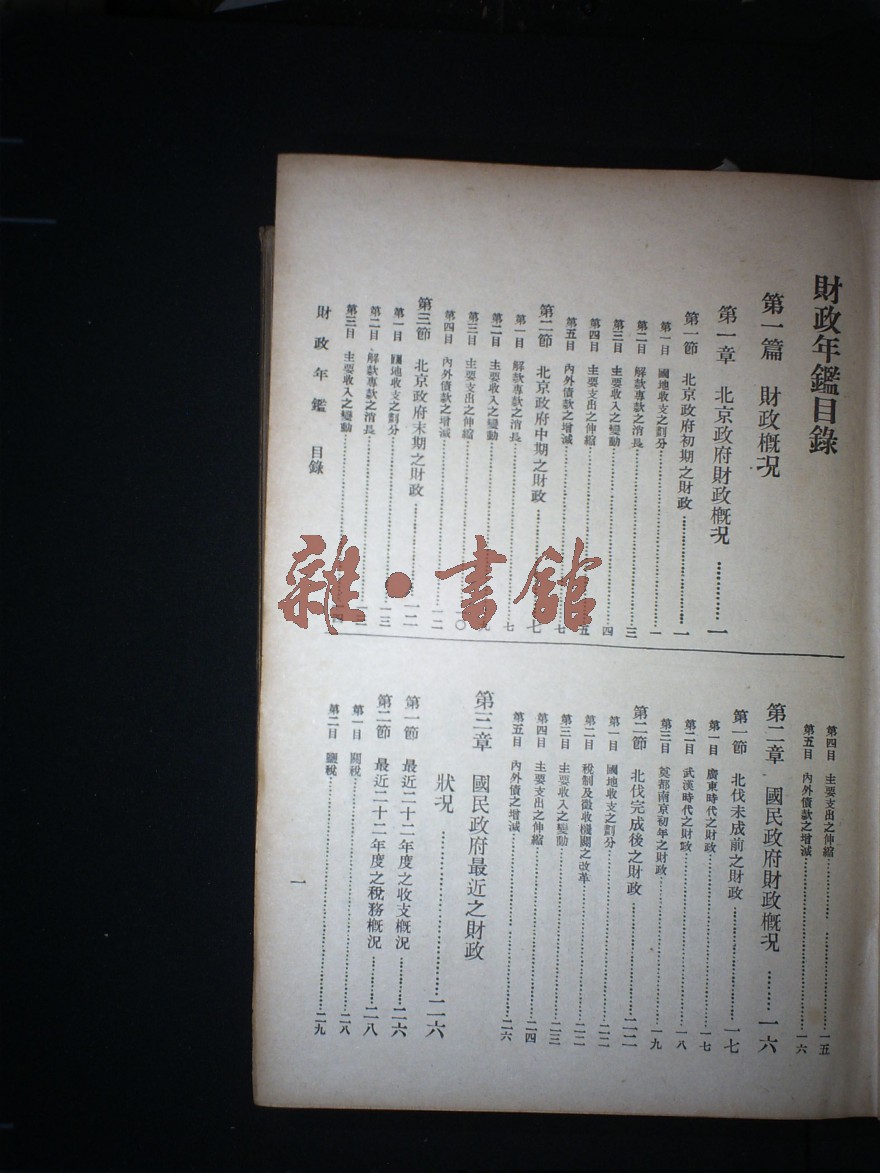 財政年鑑目錄
第一篇 財政概况
第一章 北京政府財政概况…………一
第一節 北京政府初期之財政…………一
第一目 國地收支之劃分…………一
第二目 解款專款之消長…………三
第三目 主要收入之變動…………四
第四目 主要支出之伸縮…………五
第五目 內外債款之增減…………七
第二節 北京政府中期之財政…………七
第一目 解款專款之消長…………七
第二目 主要收入之變動…………
第三目 主要支出之伸縮…………一〇
第四目 內外債款之增減…………一二
第三節 北京政府末期之財政…………一二
第一目 國地收支之劃分…………一三
第二目 解款專款之消長…………
第三目 主要收入之變動…………
財政年鑑 目錄
第四目 主要支出之伸縮…………一五
第五目 內外債款之增減…………一六
第二章 國民政府財政概况…………一六
第一節 北伐未成前之財政…………一七
第一目 廣東時代之財政…………一七
第二目 武漢時代之財政…………一八
第三目 奠都南京初年之財政…………一九
第二節 北伐完成後之財政…………二二
第一目 國地收支之劃分…………二二
第二目 稅制及徵收機關之改革…………二二
第三目 主要收入之變動…………二三
第四目 主要支出之伸縮…………二四
第五目 內外債之增減…………二六
第三章 國民政府最近之財政
狀况…………二六
第一節 最近二十二年度之收支概況…………二六
第二節 最近二十二年度之稅務概況…………二八
第一目 關稅…………二八
第二目 鹽稅…………二九
一
雜·書館